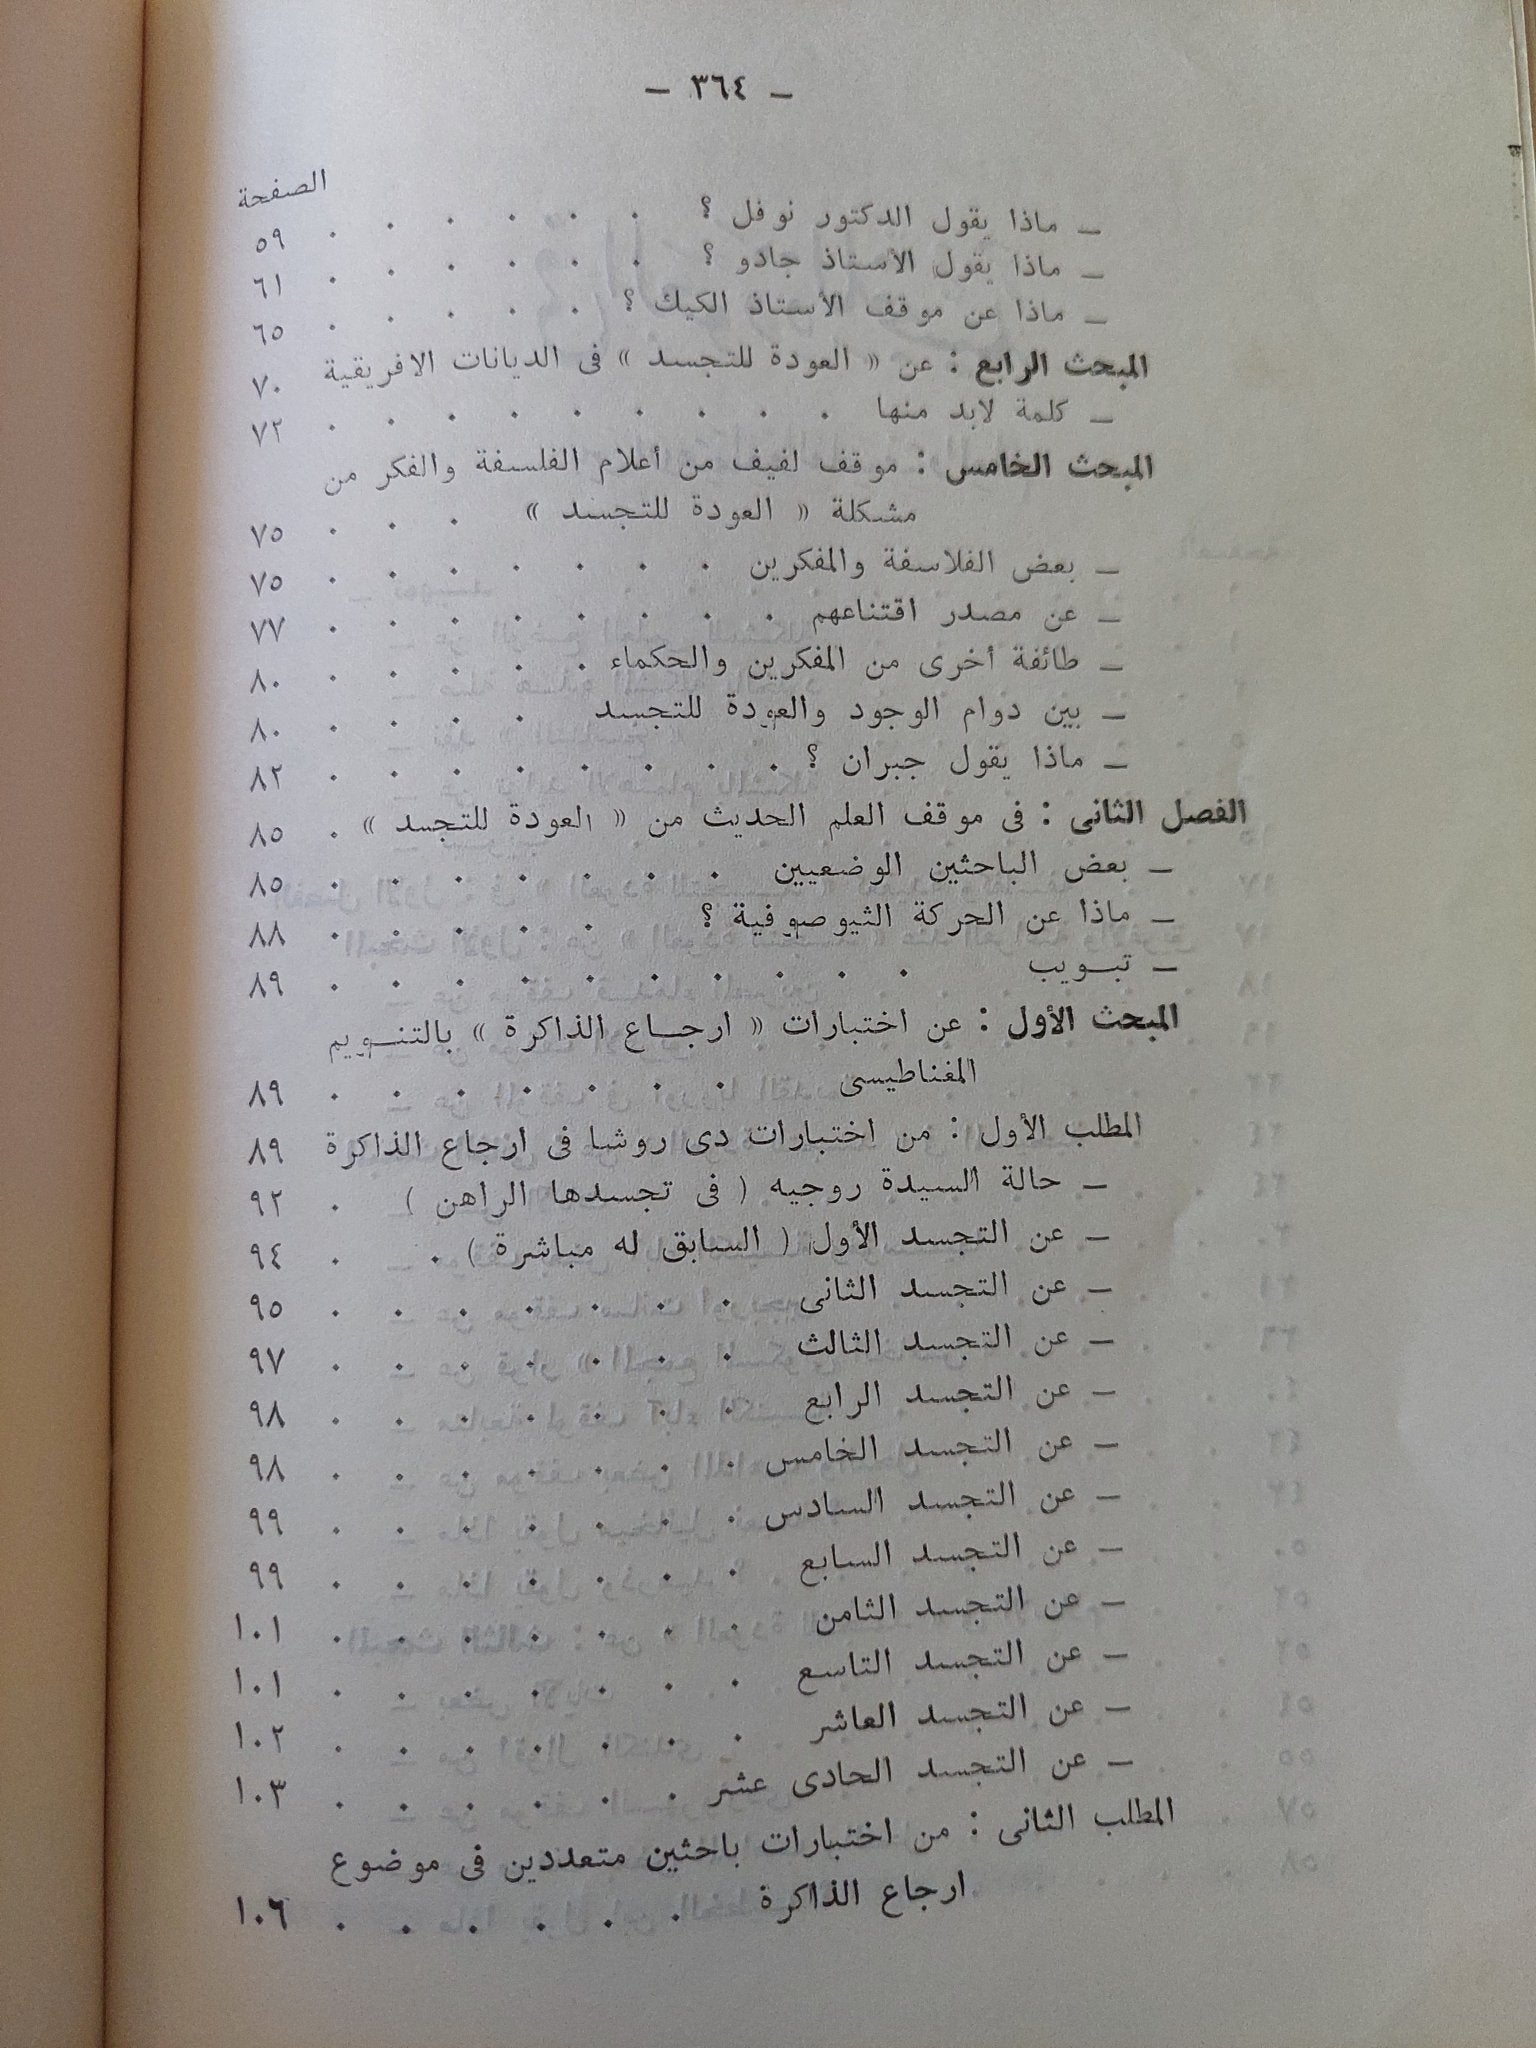 — ٣٦٤ —
الصفحة
— ماذا يقول الدكتور نوفل ؟ . . . . . . ٥٩
— ماذا يقول الأستاذ جادو ؟ . . . . . . ٦١
— ماذا عن موقف الأستاذ الكيك ؟ . . . . . ٦٥
المبحث الرابع : عن « العودة للتجسد » فى الديانات الافريقية ٧٠
— كلمة لابد منها . . . . . . . . . ٧٢
المبحث الخامس : موقف لفيف من أعلام الفلسفة والفكر من
مشكلة « العودة للتجسد » . . . ٧٥
— بعض الفلاسفة والمفكرين . . . . . . . ٧٥
— عن مصدر اقتناعهم . . . . . . . . ٧٧
— طائفة أخرى من المفكرين والحكماء . . . . . ٨٠
— بين دوام الوجود والعودة للتجسد . . . . ٨٠
— ماذا يقول جبران ؟ . . . . . . . . ٨٢
الفصل الثانى : فى موقف العلم الحديث من « العودة للتجسد » . ٨٥
— بعض الباحثين الوضعيين . . . . . . . ٨٥
— ماذا عن الحركة الثيوصوفية ؟ . . . . . ٨٨
— تبـويب . . . . . . . . . . ٨٩
المبحث الأول : عن اختبارات « ارجـاع الذاكرة » بالتنـويم
المغناطيسى . . . . . . . ٨٩
المطلب الأول : من اختبارات دى روشا فى ارجاع الذاكرة ٨٩
— حالة السيدة روجيه ( فى تجسدها الراهن ) . ٩٢
— عن التجسد الأول ( السابق له مباشرة ) . . ٩٤
— عن التجسد الثانى . . . . . . . ٩٥
— عن التجسد الثالث . . . . . . . ٩٧
— عن التجسد الرابع . . . . . . . ٩٨
— عن التجسد الخامس . . . . . . . ٩٨
— عن التجسد السادس . . . . . . . ٩٩
— عن التجسد السابع . . . . . . . ٩٩
— عن التجسد الثامن . . . . . . . ١٠١
— عن التجسد التاسع . . . . . . . ١٠١
— عن التجسد العاشر . . . . . . . ١٠٢
— عن التجسد الحادى عشر . . . . . . ١٠٣
المطلب الثانى : من اختبارات باحثين متعددين فى موضوع
ارجاع الذاكرة . . . . . . ١٠٦